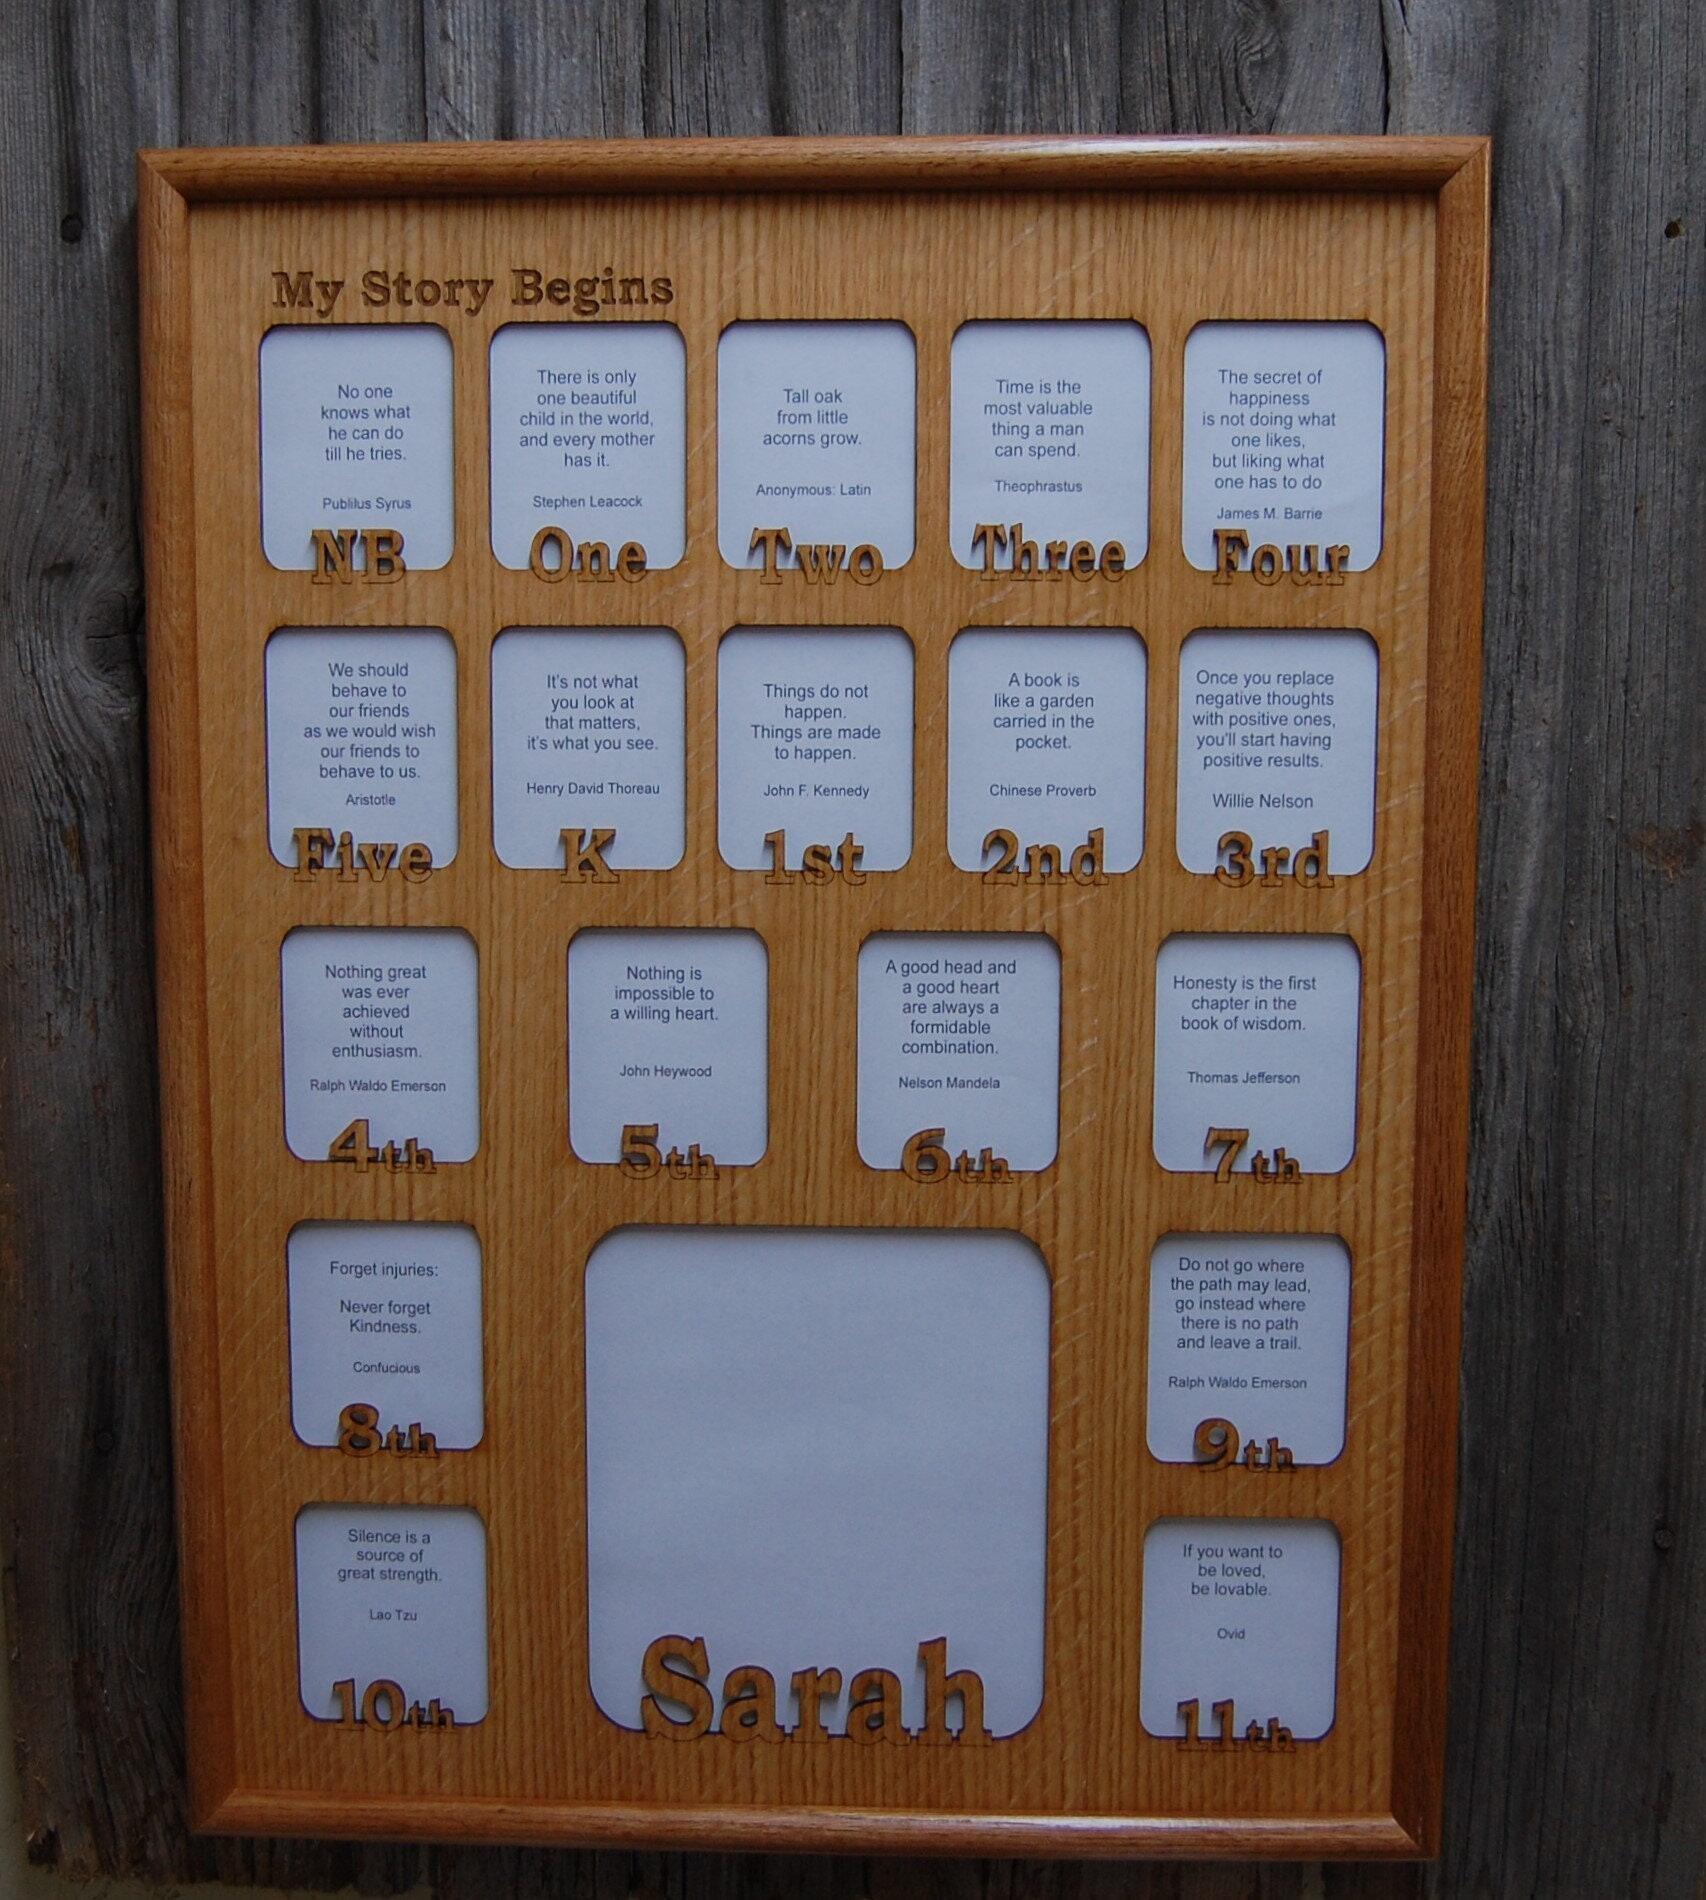 My Story Begins
No one
knows what
he can do
till he tries.
Publilus Syrus
NB
There is only
one beautiful
child in the world,
and every mother
has it.
Stephen Leacock
One
Tall oak
from little
acorns grow.
Anonymous: Latin
Two
Time is the
most valuable
thing a man
can spend.
Theophrastus
Three
The secret of
happiness
is not doing what
one likes,
but liking what
one has to do
James M. Barrie
Four
We should
behave to
our friends
as we would wish
our friends to
behave to us.
Aristotle
Five
It's not what
you look at
that matters,
it's what you see.
Henry David Thoreau
K
Things do not
happen.
Things are made
to happen.
John F. Kennedy
1st
A book is
like a garden
carried in the
pocket.
Chinese Proverb
2nd
Once you replace
negative thoughts
with positive ones,
you'll start having
positive results.
Willie Nelson
3rd
Nothing great
was ever
achieved
without
enthusiasm.
Ralph Waldo Emerson
4th
Nothing is
impossible to
a willing heart.
John Heywood
5th
A good head and
a good heart
are always a
formidable
combination.
Nelson Mandela
6th
Honesty is the first
chapter in the
book of wisdom.
Thomas Jefferson
7th
Forget injuries:
Never forget
Kindness.
Confucious
8th
Do not go where
the path may lead,
go instead where
there is no path
and leave a trail.
Ralph Waldo Emerson
9th
Silence is a
source of
great strength.
Lao Tzu
10th
Sarah
If you want to
be loved,
be lovable.
Ovid
11th